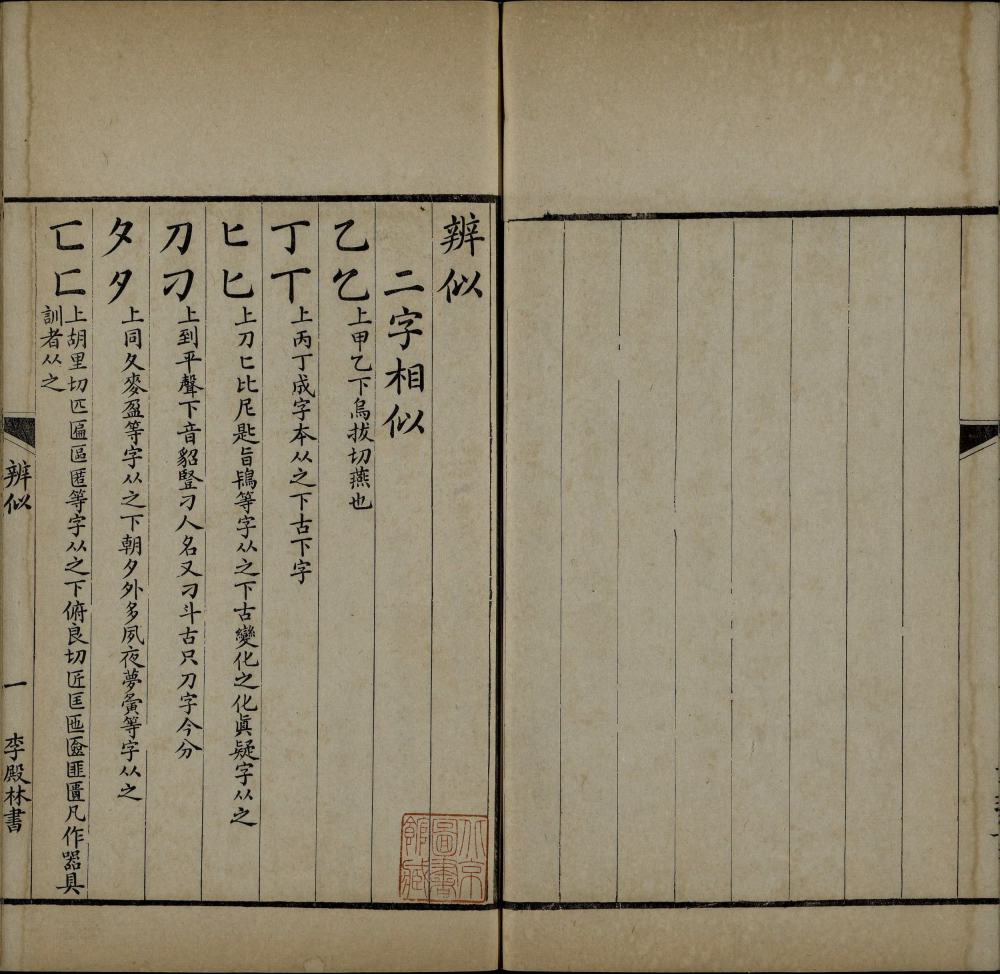 辨似
二字相似
乙𠃉上甲乙下烏拔切燕也
丁丅上丙丁成字本从之下古下字
匕𠤎上刀匕比尼匙旨鴇等字从之下古變化之化眞疑字从之
刀刁上到平聲下音貂豎刁人名又刁斗古只刀字今分
夂夕上同久麥盈等字从之下朝夕外多夙夜夢夤等字从之
匸匚上胡里切匹匾區匿等字从之下俯良切匠匡匜匳匪匱凡作器具
訓者从之
辨似
一
李殿林書
北京
圖書
館藏